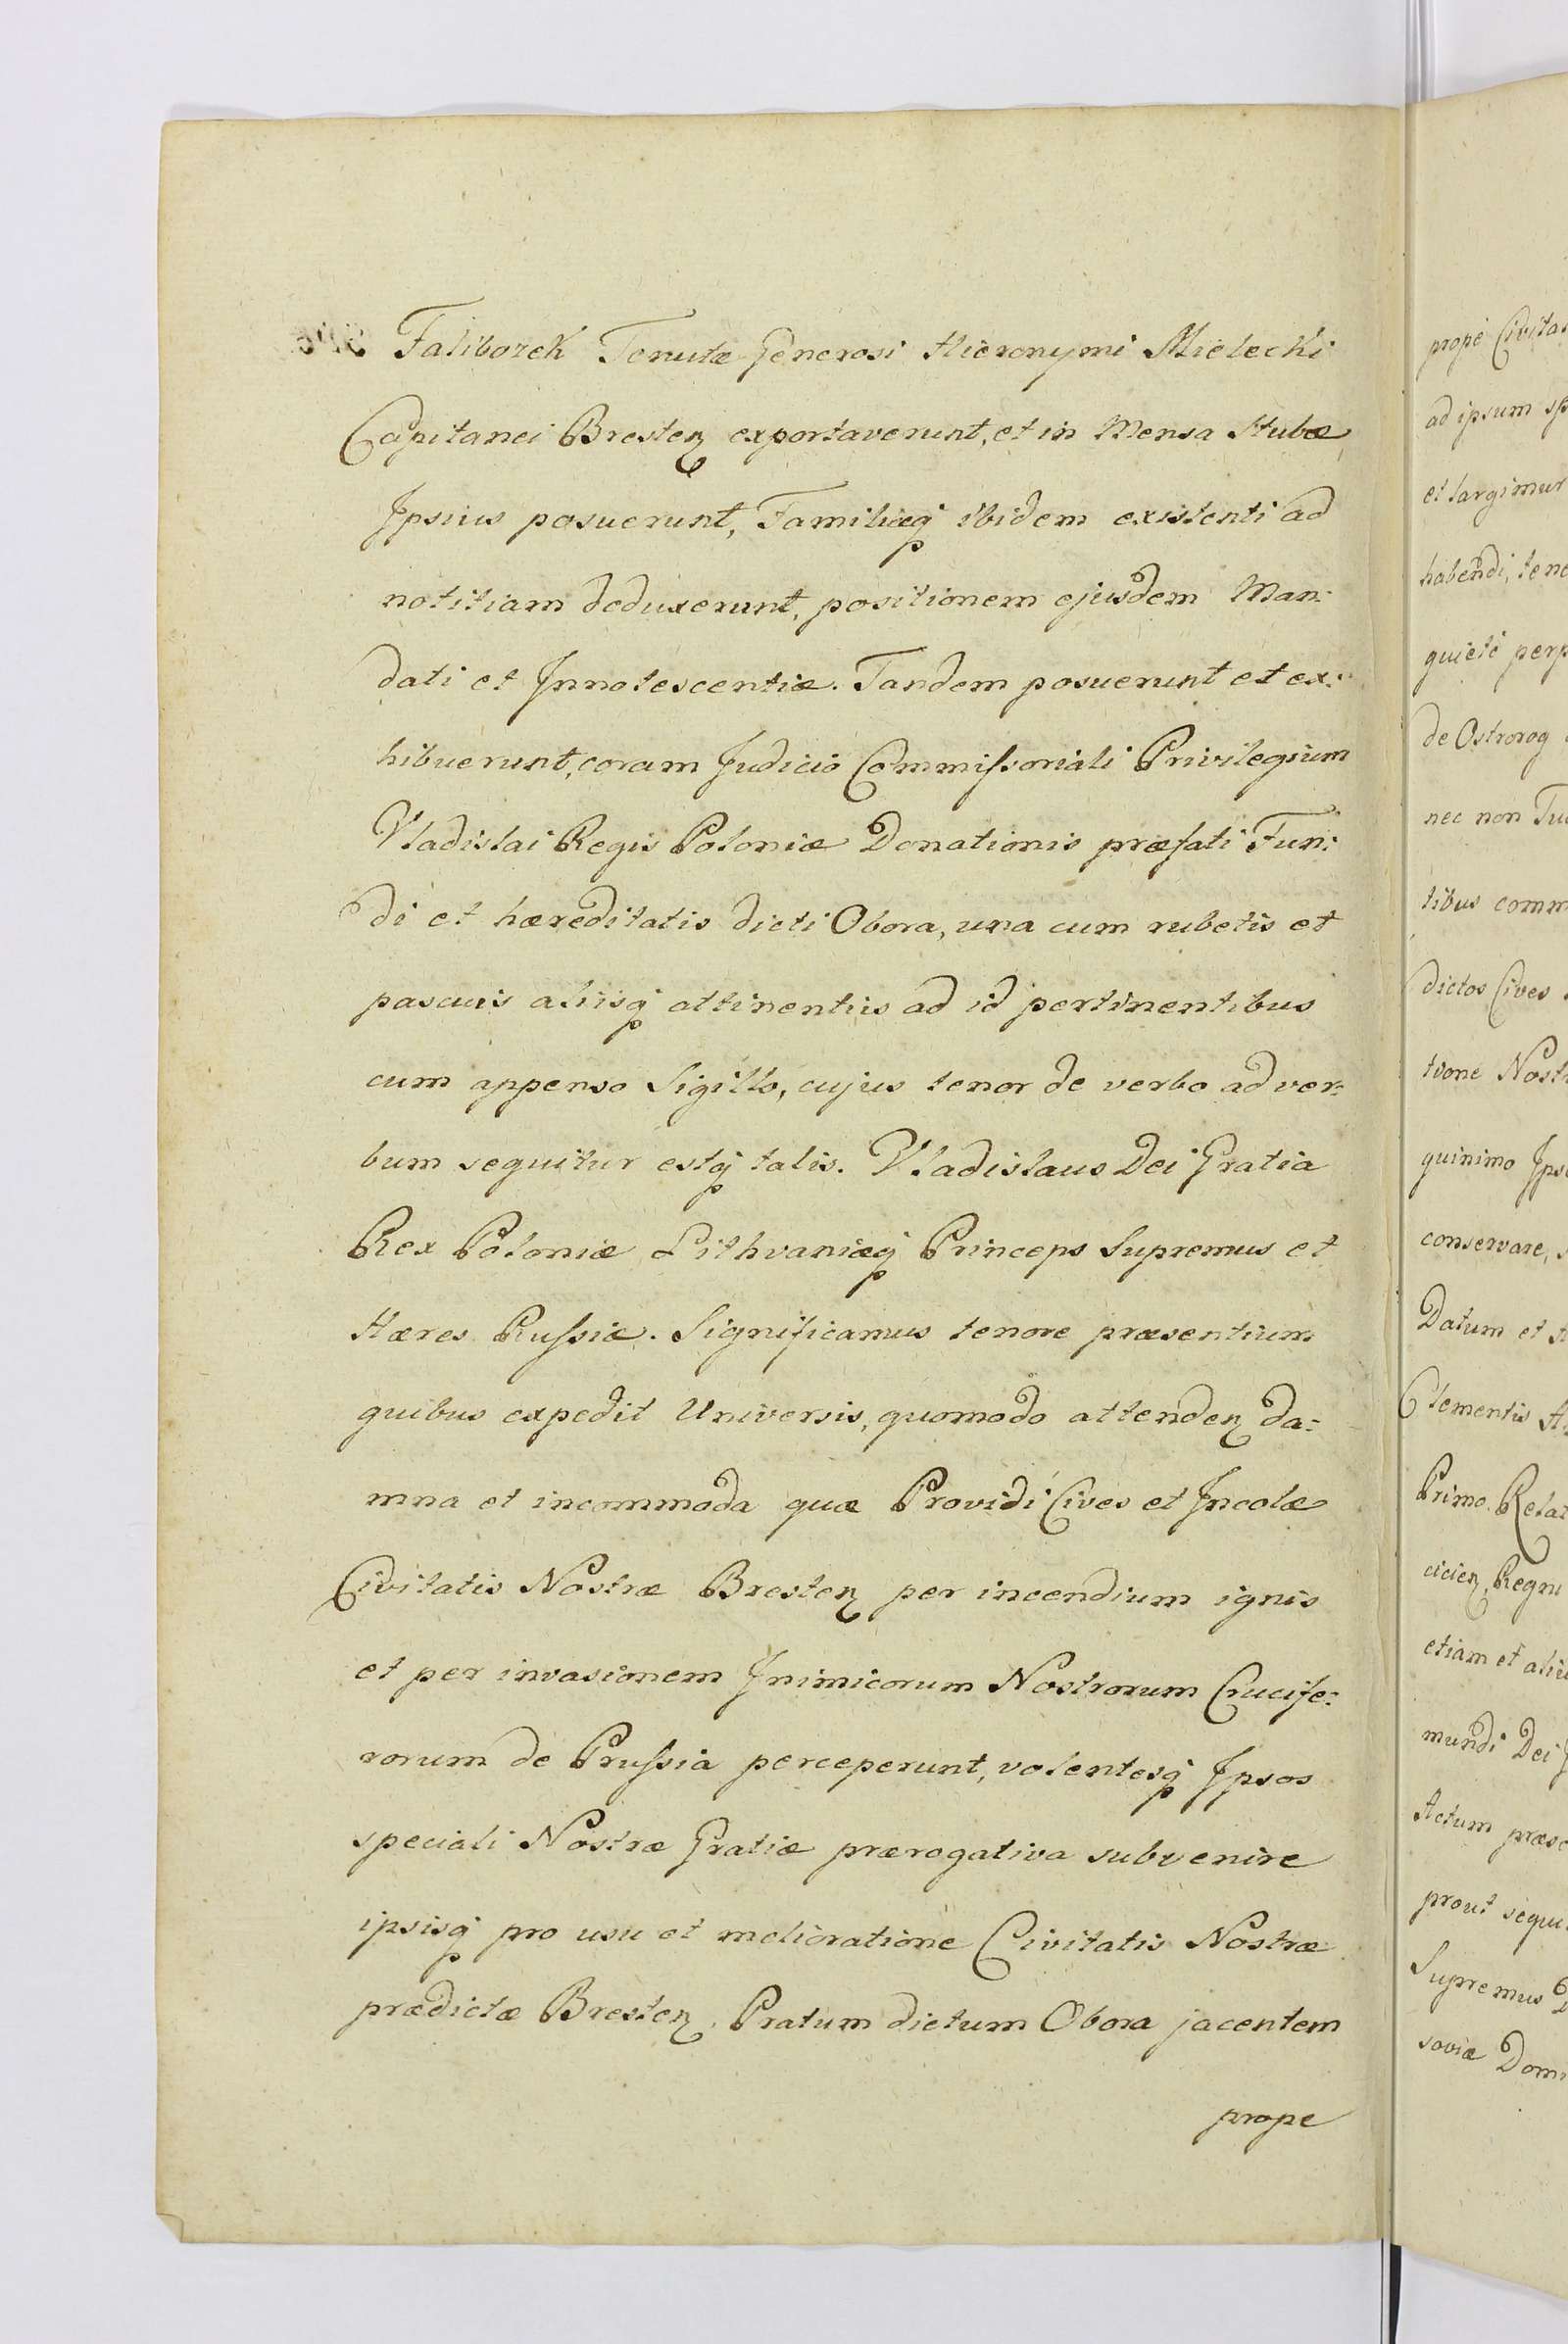 Faliborek Tenutæ Generosi Hieronymi Mielecki
Capitanei Bresteꝫ exportaverunt, et in Mensa Stubæ
Ipsius posuerunt, Familiæqꝫ ibidem existenti ad
notitiam deduxerunt, positionem ejusdem Man:
dati et Innotescentiæ. Tandem posuerunt et ex:
hibuerunt, coram Judicio Commissoriali Privilegium
Vladislai Regis Poloniæ Donationis præfati Fun:
di et hæreditatis dicti Obora, una cum rubetis et
pascuis aliisqꝫ attinentiis ad id pertinentibus
cum appenso Sigillo, cujus tenor de verbo ad ver:
bum sequitur estqꝫ talis. Vladislaus Dei Gratia
Rex Poloniæ Lithvaniæqꝫ Princeps Supremus et
Hæres Russiæ. Significamus tenore præsentium
quibus expedit Universis, quomodo attendeꝫ da:
mna et incommoda quæ Providi Cives et Incolæ
Civitatis Nostræ Bresteꝫ per incendium ignis
et per invasionem Inimicorum Nostrorum Crucife:
rorum de Prussia perceperunt, volentesqꝫ Ipsos
speciali Nostræ Gratiæ prærogativa subvenire
ipsisqꝫ pro usu et melioratione Civitatis Nostræ
prædictæ Bresteꝫ. Pratum dictum Obora jacentem
prope
prope Civitas
ad ipsum sp
et largimur
habendi, tene
quiete perp
de Ostrorog
nec non Tu
tibus comm
dictos Cives
tione Nostr
quinimo Ips
conservare,
Datum et A
Clementis
Primo. Relat
cicieꝫ, Regni
etiam et alii
mundi Dei
Actum præse
prout sequi
Supremus
soviæ Domi